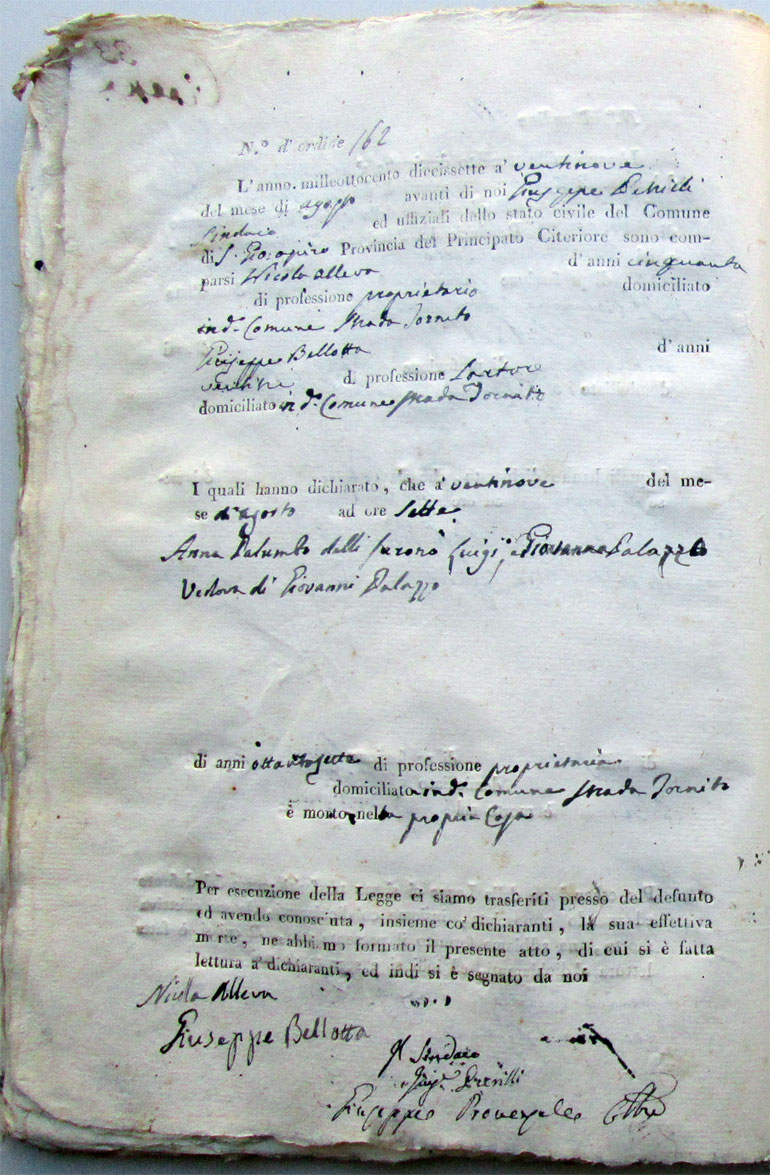 N.º d'ordine 162
L'anno milleottocento diecissette a' ventinove
del mese di agosto avanti di noi Giuseppe
Sindaco ed uffiziali dello stato civile del Comune
di S. Gio: a piro Provincia del Principato Citeriore sono com-
parsi Nicola Alleva d'anni cinquanta
di professione proprietario domiciliato
in d.º Comune Strada Tornito
Giuseppe Bellotta d'anni
di professione Sartore
domiciliato in d.º Comune Strada Tornito
I quali hanno dichiarato, che a' ventinove del me-
se d'agosto ad ore sette
Anna Palumbo delli furono Luigi, e Giovanna Palazzo
Vedova di Giovanni Palazzo
di anni ottantasette di professione proprietaria
domiciliata in d.º Comune Strada Tornito
è morta nella propria Casa
Per esecuzione della Legge ci siamo trasferiti presso del defunto
ed avendo conosciuta, insieme co' dichiaranti, la sua effettiva
morte, ne abbiamo formato il presente atto, di cui si è fatta
lettura a' dichiaranti, ed indi si è segnato da noi
Nicola Alleva
Giuseppe Bellotta
Il Sindaco
Giuseppe